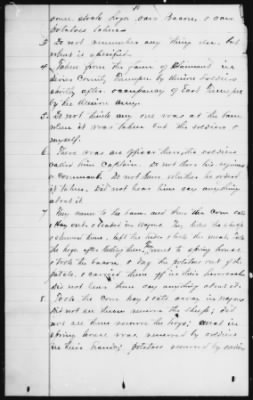 some shoats hogs some Bacon, & some
potatoes taken
3. Do not remember any thing else but
what is specified.
4. Taken from the farm of Claimant in
Sevier County, Tennessee by Union Soldiers
shortly after occupancy of East Tennessee
by the Union Army.
5. Do not think any one was at the barn
when it was taken but the soldiers &
myself.
6. There was an officer there the soldiers
called him Captain. Do not know his regiment
or command. Do not know whether he ordered
it taken. Did not hear him say anything
about it.
7. They came to the barn and threw the corn oats
& Hay out & loaded in wagons. They killed the sheep
& skinned them, left the hides & took the meat, took
the hogs after killing them. They went to spring house
& took the bacon & dug the potatoes out of the
patch, & carried them off in their haversacks
did not hear them say anything about it.
8. Took the corn hay & oats away in wagons
did not see them remove the sheep; did
not see them remove the hogs; meat in
spring house was removed by soldiers
in their hands; potatoes removed by